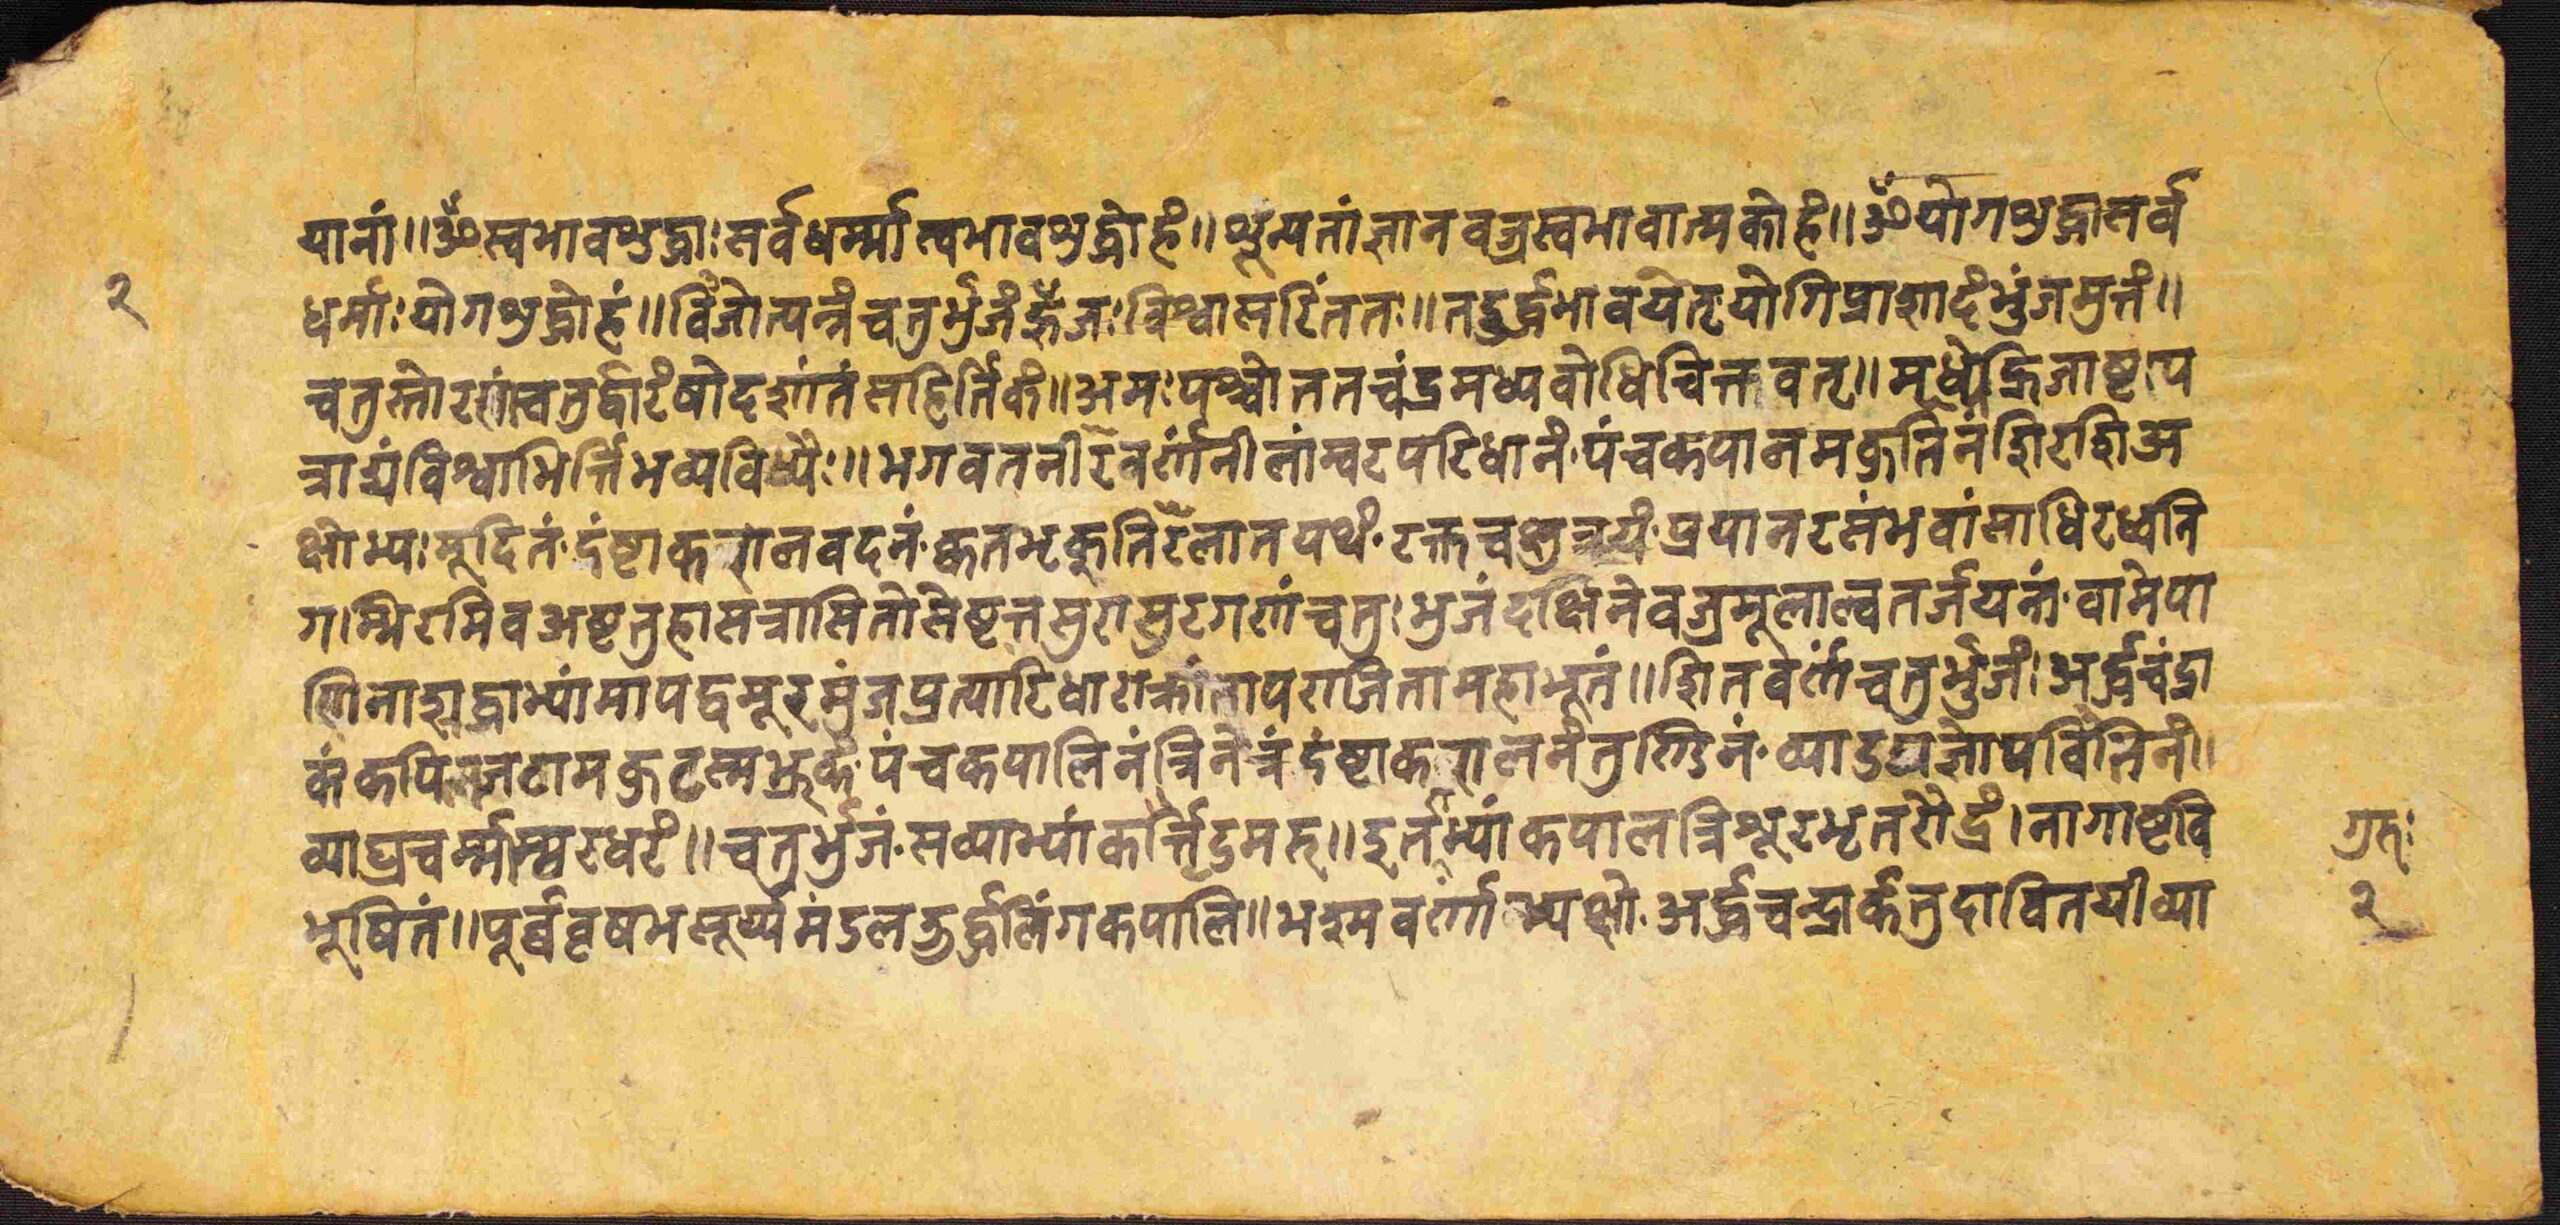 यानां॥ॐस्वभावशुद्धाःसर्वधर्म्मास्वभावशुद्धोहं॥शून्यतांज्ञानवज्रस्वभावात्मकोहं॥ॐयोगशुद्धासर्व
२
धर्माःयोगशुद्धोहं॥विंजोत्पन्नंचतुर्भुजंह्रूँजःविश्वासरिंततः॥तदुर्द्धभावयेत्योगिप्राशादंभुंजमुत्तं॥
चतुस्तोरणंचतुर्द्वारंषोदशांतंसहितिकं॥अमःपश्चोततचंद्रमध्यवोधिचित्तवत्॥मध्येह्रिजाष्टप
त्राद्यंविश्वाभिर्त्तिभव्यविध्यैः॥भगवतनीरवर्णंनीलांम्वरपरिधानं·पंचकपानमकुतिनंशिरशिअ
क्षोभ्यःमूदितं·दंष्ट्राकरालवदनं·कृतभृकुतिरलातपथं·रक्तचक्षुत्रयं·प्रयानरसंभवांसाधिरध्वनि
गाम्भिरमिवअष्टतुहासत्रासितोसेष्टत्तसुरासुरगणंचतुःभुजंदक्षिनेवज्रमूलाल्वतर्जयनं·वामेपा
णिनाशद्वाभ्यांमापद्वमूरमुंजप्रत्यारिधाराक्रांतापराजितामहाभूतं॥शितवर्णंचतुर्भुजं।अर्द्धचंद्रा
कंकपिलजटामकुटत्मझूकं·पंचकपालिनंत्रिनेत्रंदंष्ट्राकरालनंतुण्डिनं·व्याडयज्ञोपवितिनं॥
व्याघ्रचर्म्माम्वरधरं॥चतुर्भुजं·सव्याभ्यांकर्त्तिडमरु॥इर्तभ्यांकपालत्रिशूरभृतरौद्रं।नागाष्टवि
गुरुः
भूषितं॥पूर्ववृषभसूर्य्यमंडलर्द्धलिंगकपालि॥भश्मवर्ण्णाभ्यक्षो·अर्द्धचन्द्रार्कतुदावितयीव्या
२